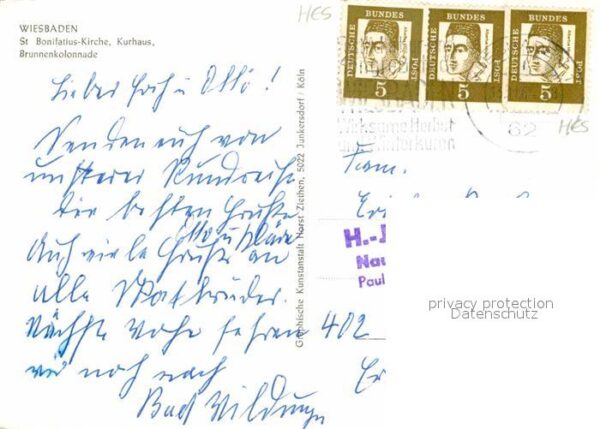 WIESBADEN
St Bonifatius-Kirche, Kurhaus,
Brunnenkolonnade
HES
DEUTSCHE BUNDES POST 5
DEUTSCHE BUNDES POST 5
DEUTSCHE BUNDES POST 5
HES
Wirksame Herbst
und Winterkuren
62
Lieber Horst u Otto!
Senden euch von
unserer Rundreise
die besten Grüße
Otto u Kläre
Auch viele Grüße an
alle
Nächste Woche fahren
wir noch nach
Bad Wildungen
Graphische Kunstanstalt Horst Ziethen, 5022 Junkersdorf / Köln
Fam.
H.-J
Nau
Paul
402
privacy protection
Datenschutz